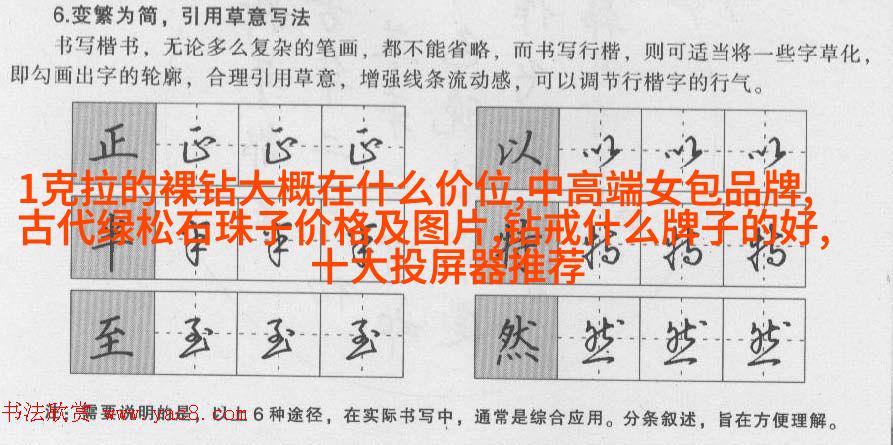 6.变繁为简，引用草意写法
书写楷书，无论多么复杂的笔画，都不能省略，而书写行楷，则可适当将一些字草化，
即勾画出字的轮廓，合理引用草意，增强线条流动感，可以调节行楷字的行气。
正 正 正 正 以 以 以 以
1克拉的裸钻大概在什么价位,中高端女包品牌,
古代绿松石珠子价格及图片,钻戒什么牌子的好,
十大投屏器推荐
特 特 特
至 至 至 至 然 然 然 然
书法欣赏 www.yac8.com
注：需要说明的是，以上6种途径，在实际书写中，通常是综合应用。分条叙述，旨在方便理解。